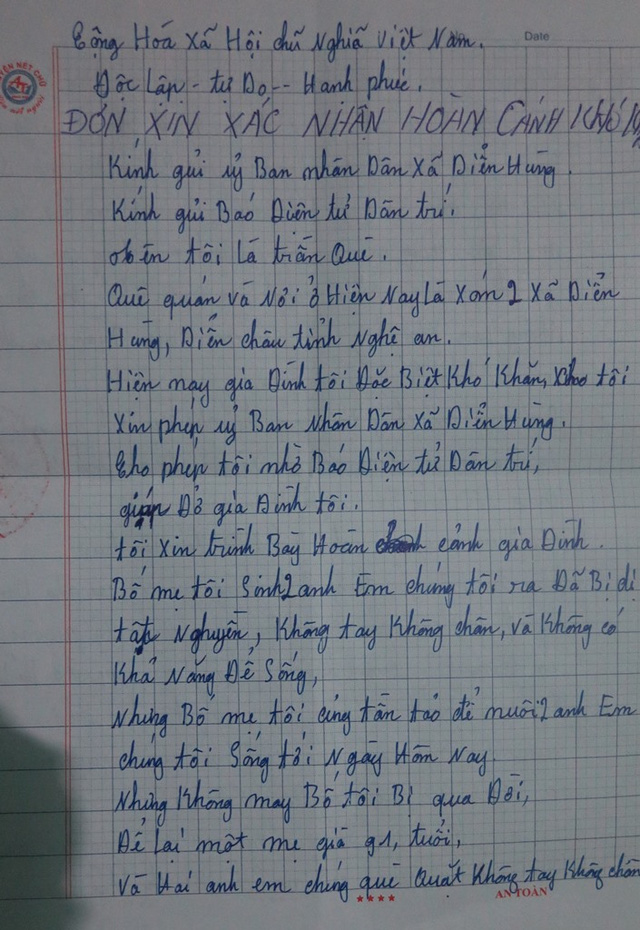 Cộng Hoá Xã Hội chủ Nghiã Việt Nam.
Date
Độc Lập - tự Do -- Hanh phúc.
ĐƠN XIN XÁC NHẬN HOÀN CẢNH KHÓ
Kính gửi uỷ Ban nhân Dân Xã Diễn Hùng.
Kính gửi Baó Điện tử Dân trí.
tôi Là trần Quê.
Quê quán và Nơi ở Hiện Nay Là Xóm 2 Xã Diễn
Hùng, Diễn châu tỉnh Nghệ an.
Hiện nay gia Đình tôi Đặc Biệt Khó Khăn, cho tôi
Xin phép uỷ Ban Nhân Dân Xã Diễn Hùng.
Cho phép tôi nhờ Baó Điện tử Dân trí,
giúp Dở gia Đình tôi.
tôi Xin trình Bày Hoàn cảnh gia Đình.
Bố mẹ tôi Sinh 2 anh Em chúng tôi ra Đã Bị dị
tật Nguyền, Không tay Không chân, và Không có
Khả Năng Để Sống,
Nhưng Bố mẹ tôi cúng tần tảo để nuôi 2 anh Em
chúng tôi Sống tới Ngày Hôm Nay.
Nhưng Không may Bố tôi Bị qua Đời,
Để Lại một mẹ già 91, tuổi,
và Hai anh em chúng què Quặt Không tay Không chân
AN TOÀN